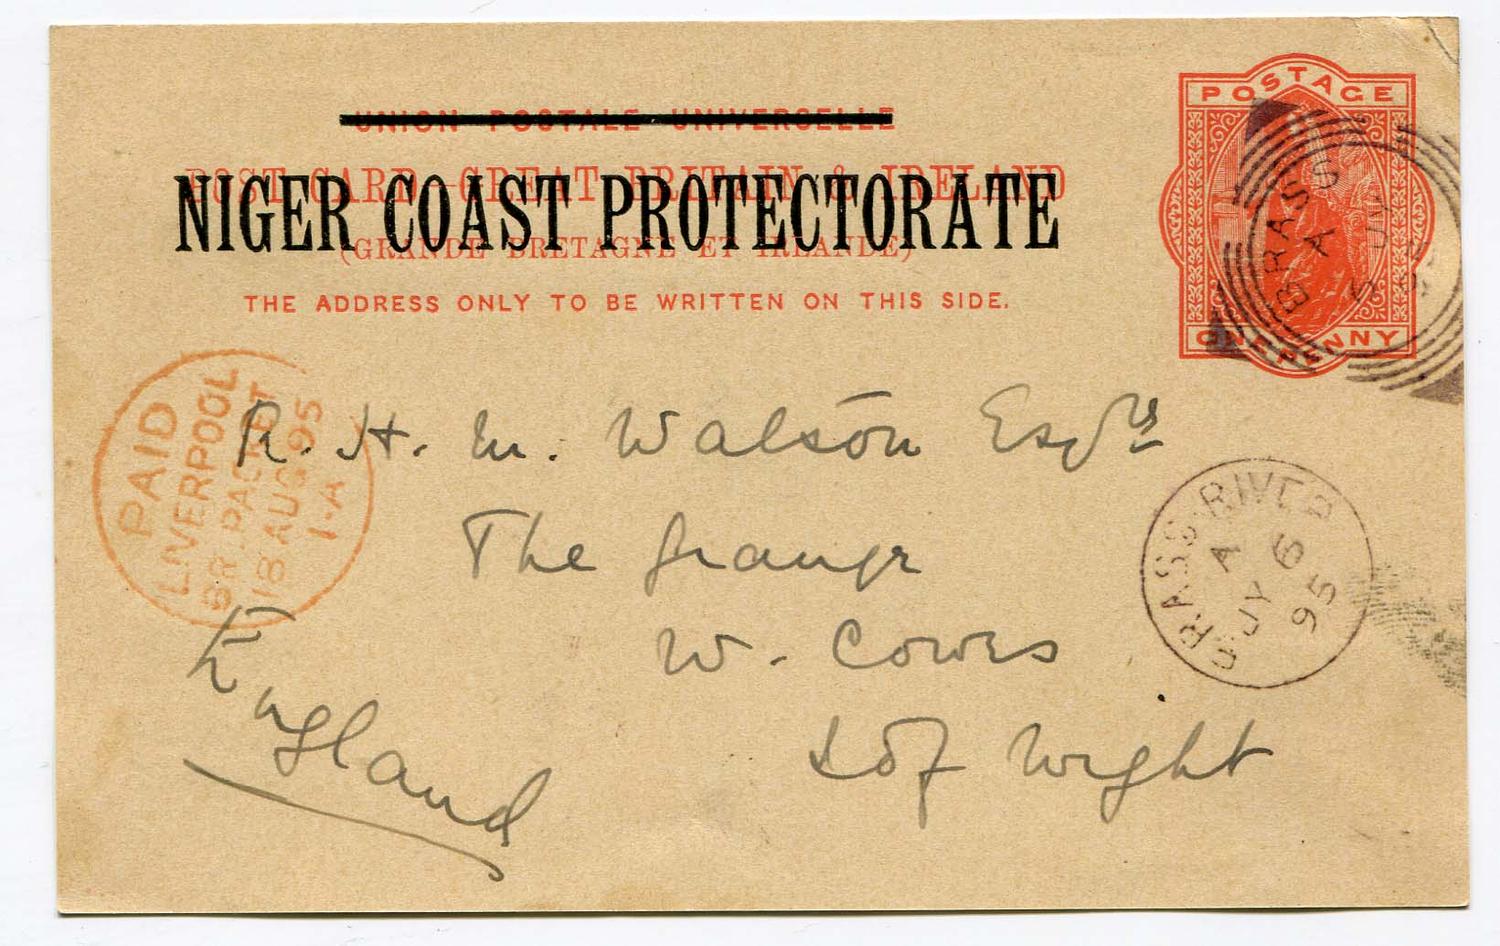 UNION POSTALE UNIVERSELLE
POST CARD - GREAT BRITAIN & IRELAND
NIGER COAST PROTECTORATE
(GRANDE BRETAGNE ET IRLANDE)
THE ADDRESS ONLY TO BE WRITTEN ON THIS SIDE.
POSTAGE
ONE PENNY
BRASS
A
PAID
LIVERPOOL
BR. PACKET
18 AUG 95
1-A
R. H. M. Walson Esqre
The Grange
W. Cowes
I of Wight
England
BRASS RIVER
A
JY 6
95